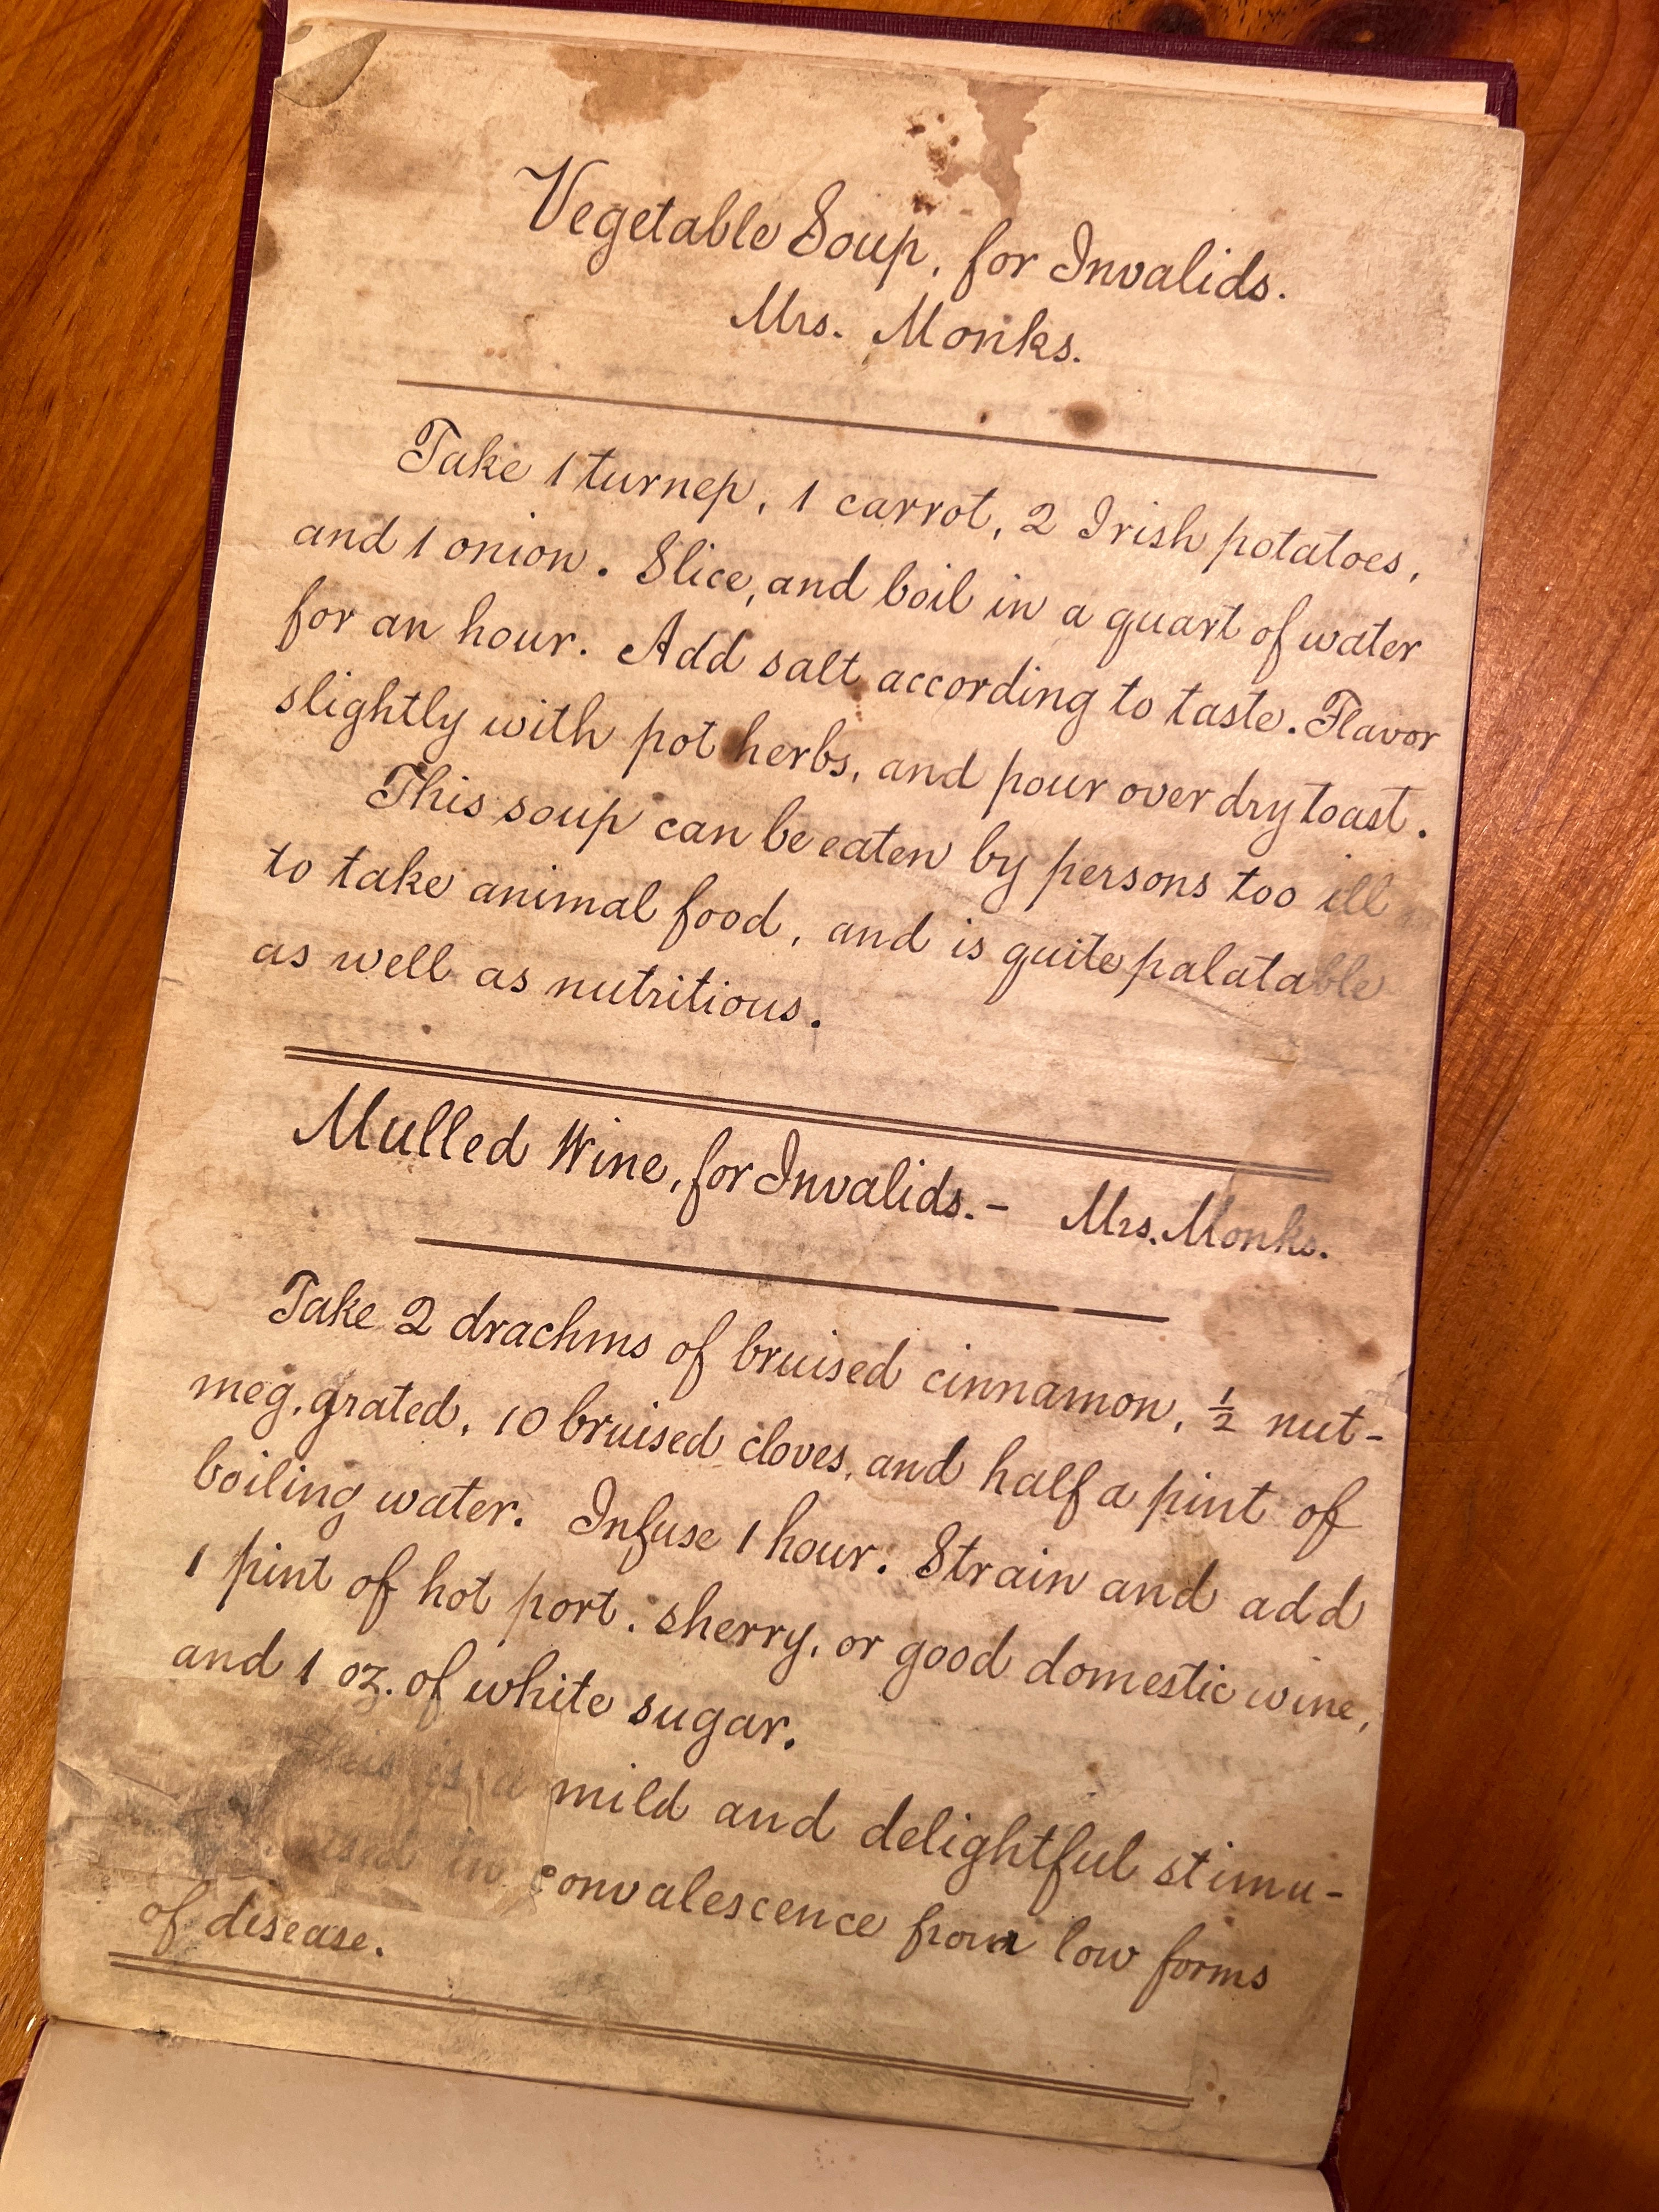 Vegetable Soup, for Invalids.
Mrs. Monks.
Take 1 turnep, 1 carrot, 2 Irish potatoes,
and 1 onion. Slice, and boil in a quart of water
for an hour. Add salt according to taste. Flavor
slightly with pot herbs, and pour over dry toast.
This soup can be eaten by persons too ill
to take animal food, and is quite palatable
as well as nutritious.
Mulled Wine, for Invalids. - Mrs. Monks.
Take 2 drachms of bruised cinnamon, ½ nut-
meg, grated, 10 bruised cloves, and half a pint of
boiling water. Infuse 1 hour. Strain and add
1 pint of hot port, sherry, or good domestic wine,
and 1 oz. of white sugar.
This is a mild and delightful stimu-
used in convalescence from low forms
of disease.